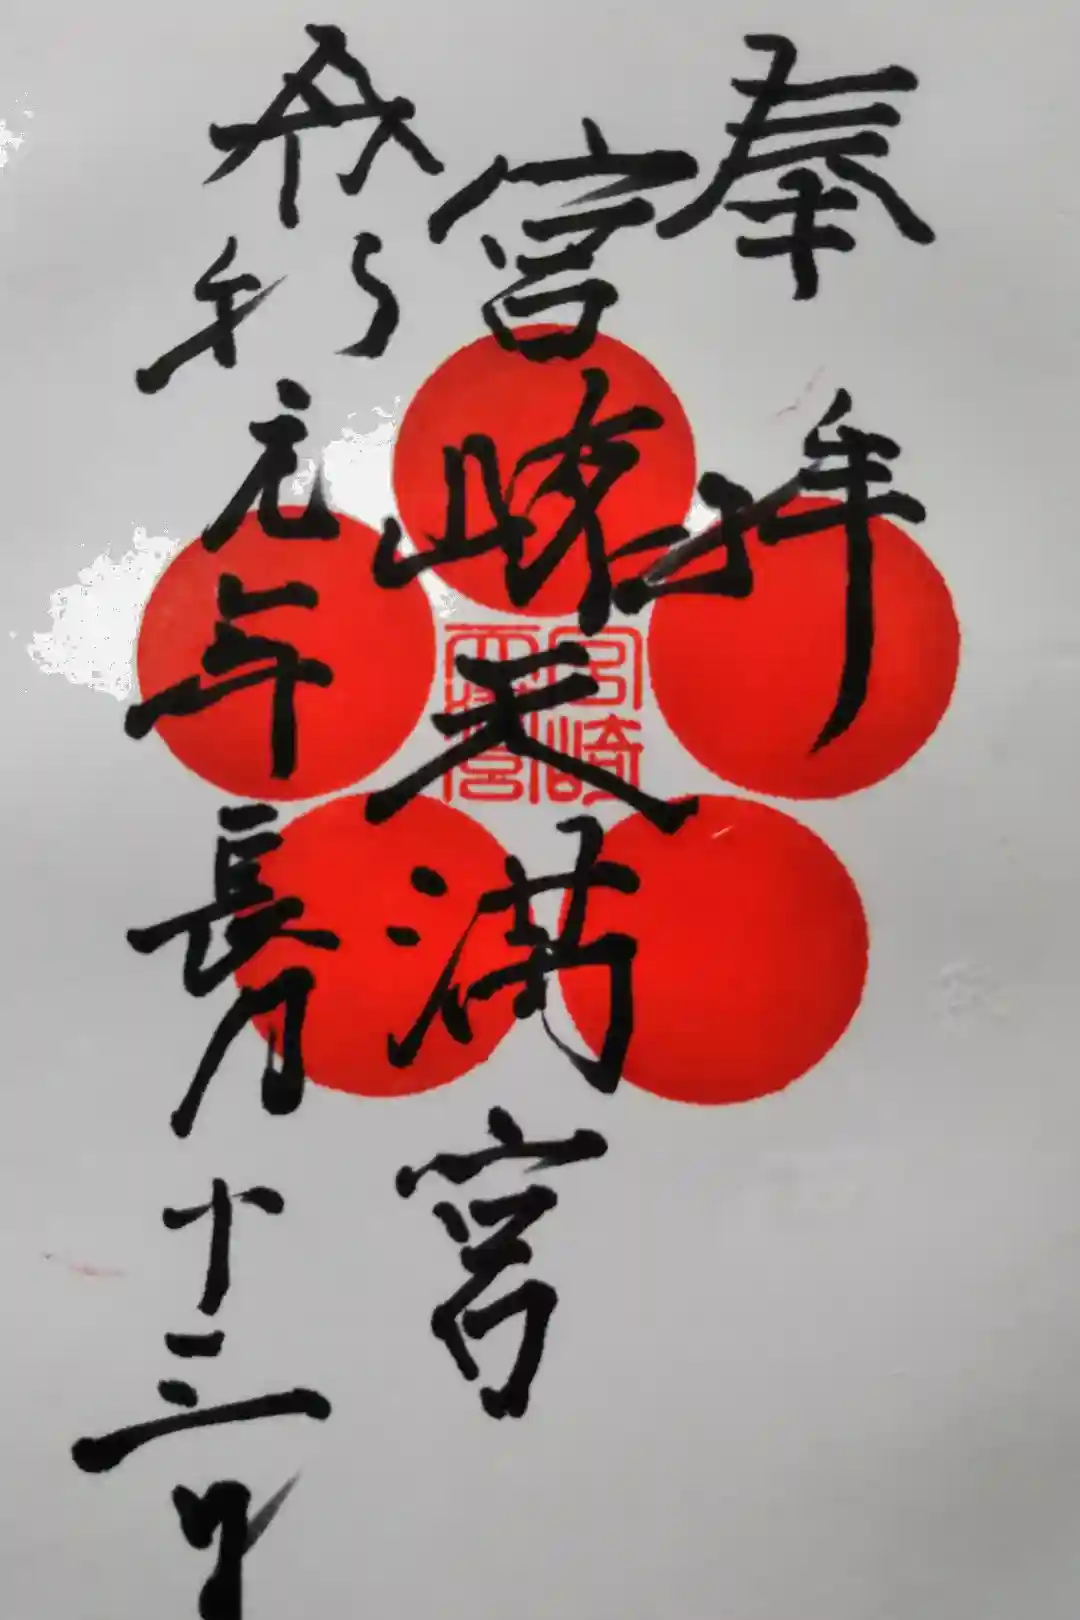 奉拝
宮崎天満宮
宮崎天満宮
令和元年長月十三日